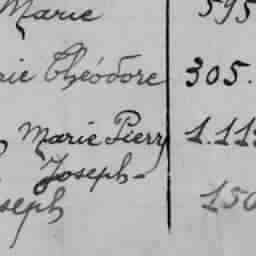 Marie 595
rie Théodore 305.
Marie Pierr 1.11
Joseph
seph 150